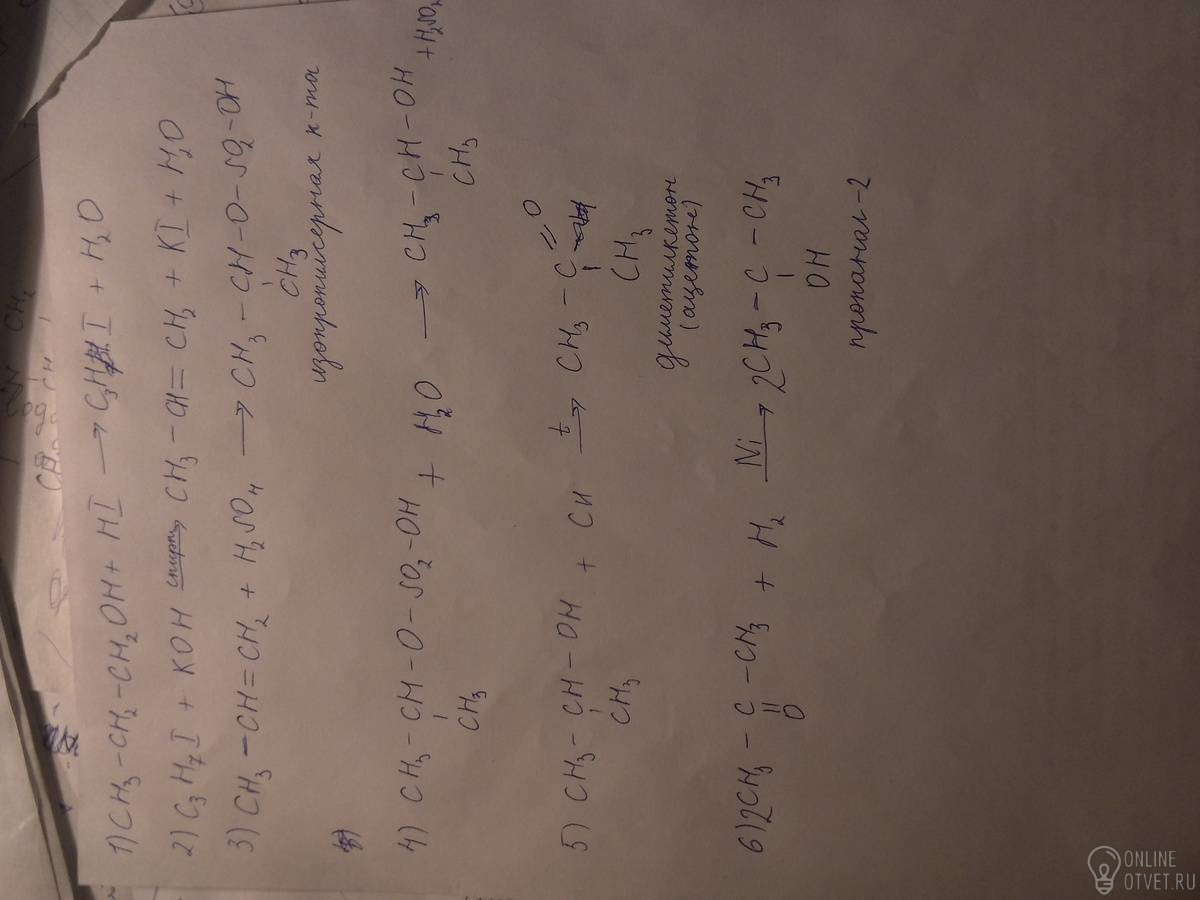 1) CH3-CH2-CH2OH + HI → C3H7I + H2O
2) C3H7I + KOH спирт→ CH3-CH=CH2 + KI + H2O
3) CH3-CH=CH2 + H2SO4 → CH3-CH-O-SO2-OH
CH3
изопропилсерная к-та
4) CH3-CH-O-SO2-OH + H2O → CH3-CH-OH + H2SO4
CH3 CH3
5) CH3-CH-OH + Cu t→ CH3-C=O
CH3 CH3
диметилкетон
(ацетоне)
6) 2CH3-C-CH3 + H2 Ni→ 2CH3-C-CH3
O OH
пропанал-2
ONLINE
OTVET.RU